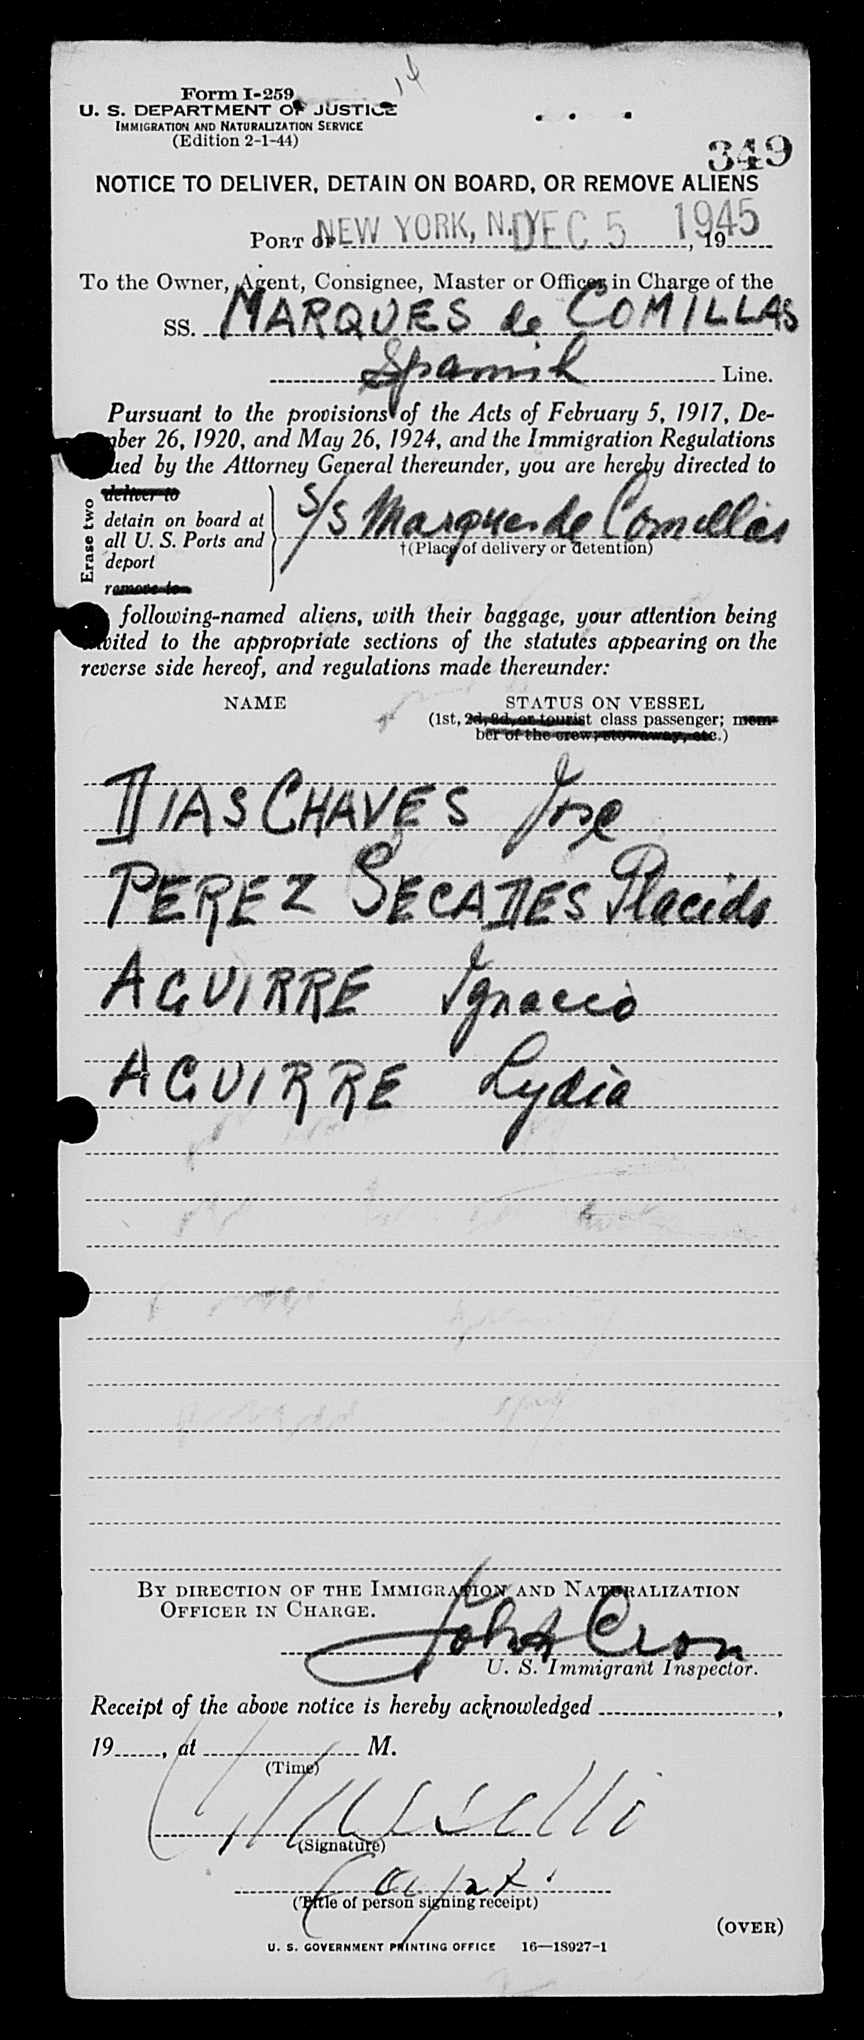 14
Form I-259
U. S. DEPARTMENT OF JUSTICE
IMMIGRATION AND NATURALIZATION SERVICE
(Edition 2-1-44)
349
NOTICE TO DELIVER, DETAIN ON BOARD, OR REMOVE ALIENS
PORT OF NEW YORK, N.Y. DEC 5 1945, 19
To the Owner, Agent, Consignee, Master or Officer in Charge of the
SS. MARQUES de COMILLAS
Spanish Line.
Pursuant to the provisions of the Acts of February 5, 1917, De-
mber 26, 1920, and May 26, 1924, and the Immigration Regulations
ued by the Attorney General thereunder, you are hereby directed to
Erase two
deliver to
detain on board at
all U. S. Ports and
deport
remove to
S/S Marques de Comillas
†(Place of delivery or detention)
following-named aliens, with their baggage, your attention being
invited to the appropriate sections of the statutes appearing on the
reverse side hereof, and regulations made thereunder:
NAME STATUS ON VESSEL
(1st, 2d, 3d, or tourist class passenger; mem-
ber of the crew, stowaway, etc.)
DIAS CHAVES Jose
PEREZ SECADES Placido
AGUIRRE Ignacio
AGUIRRE Lydia
BY DIRECTION OF THE IMMIGRATION AND NATURALIZATION
OFFICER IN CHARGE.
John Cron
U. S. Immigrant Inspector.
Receipt of the above notice is hereby acknowledged ,
19 , at M.
(Time)
(Signature)
Capt.
(Title of person signing receipt)
(OVER)
U. S. GOVERNMENT PRINTING OFFICE 16—18927-1